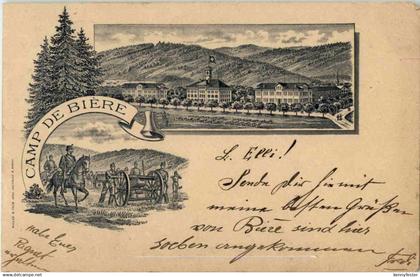 CAMP DE BIÈRE
L. Elli!
Sende Dir hiermit
meine besten Grüßen
von Bière sind hier
soeben angekommen
habe Euer
Paquet
erhalten
kennyfester